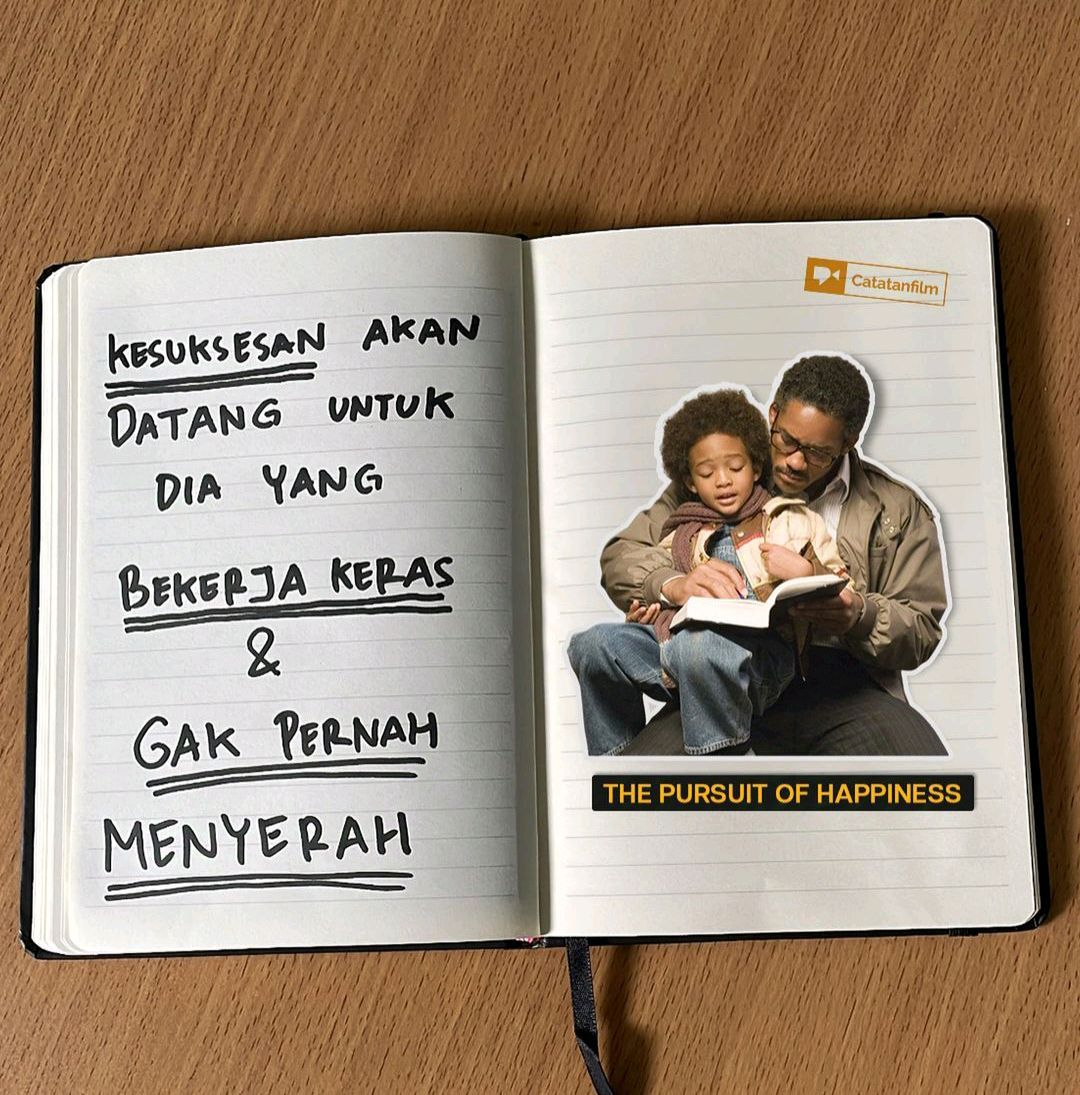 KESUKSESAN AKAN
DATANG UNTUK
DIA YANG
BEKERJA KERAS
&
GAK PERNAH
MENYERAH
Catatanfilm
THE PURSUIT OF HAPPINESS